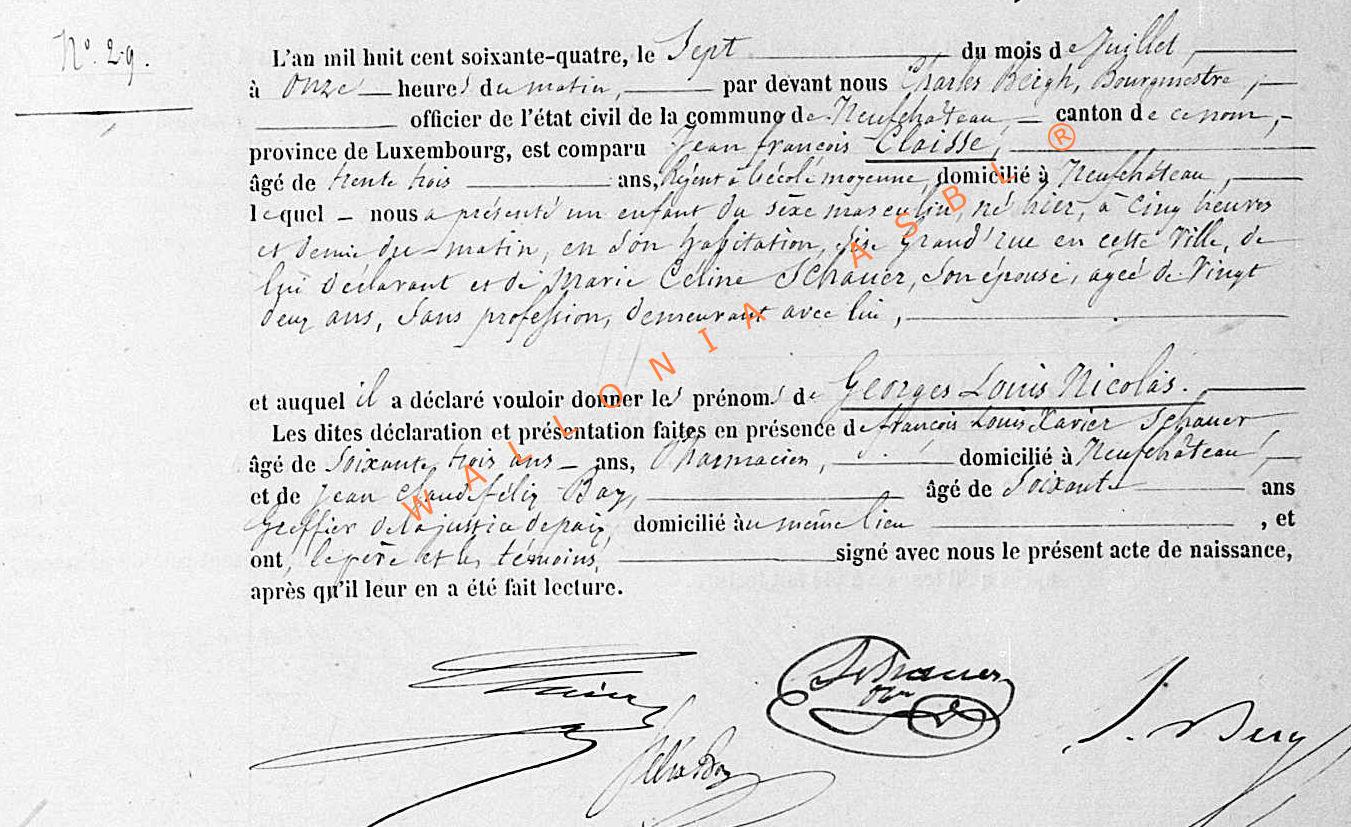 N° 29.
L'an mil huit cent soixante-quatre, le Sept du mois de Juillet,
à onze heures du matin, par devant nous Charles Bergh, Bourgmestre,
officier de l'état civil de la commune de Neufchâteau, canton de ce nom,
province de Luxembourg, est comparu Jean françois Claisse,
âgé de trente trois ans, Régent à l'école moyenne, domicilié à Neufchâteau,
lequel nous a présenté un enfant du sèxe masculin, né hier, à cinq heures
et demie du matin, en son habitation, sise Grand'rue en cette Ville, de
lui déclarant et de Marie Céline Schauer, son épouse, agée de Vingt
deux ans, sans profession, demeurant avec lui,
et auquel il a déclaré vouloir donner les prénoms de Georges Louis Nicolas.
Les dites déclaration et présentation faites en présence de françois Louis Xavier Schauer
âgé de Soixante trois ans ans, Pharmacien, domicilié à Neufchâteau,
et de Jean félix Bay, âgé de Soixante ans
Greffier de la justice de paix, domicilié au même lieu , et
ont, le père et les témoins, signé avec nous le présent acte de naissance,
après qu'il leur en a été fait lecture.
Schauer
félix Bay
WALLONIA ASBL ®